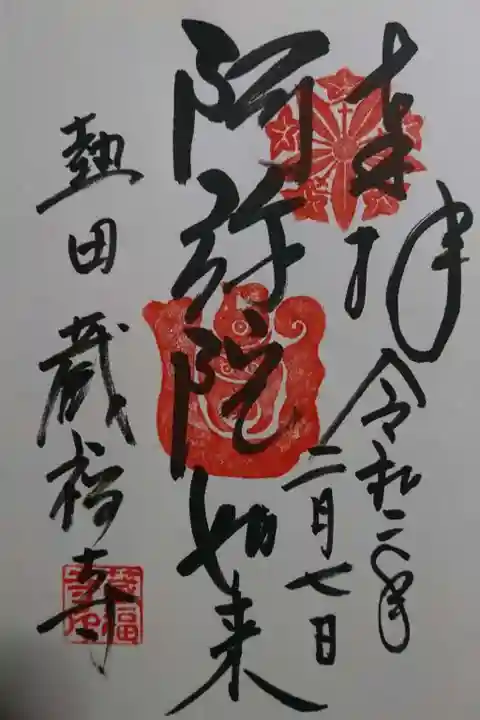 奉拝
令和二年
二月七日
阿弥陀如来
熱田 蔵福寺
蔵福寺印